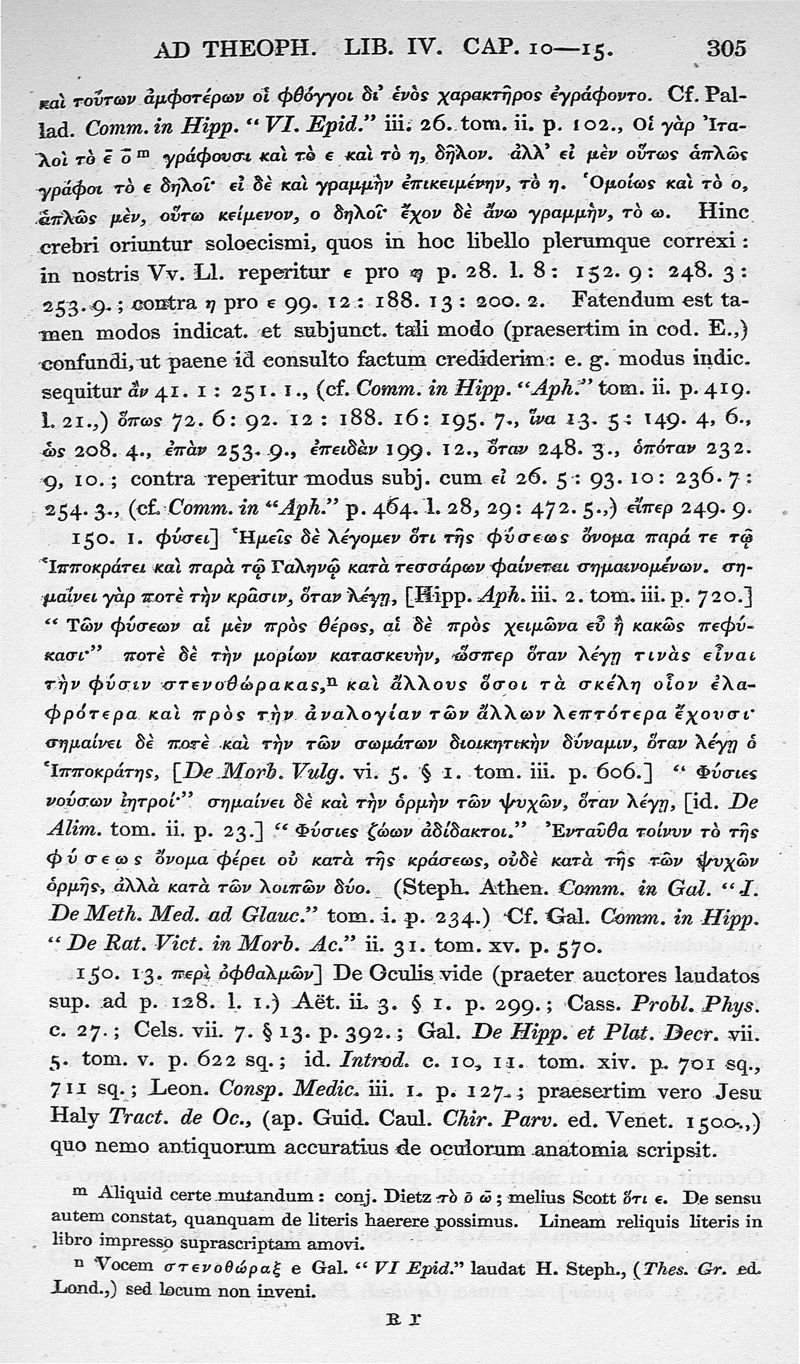 AD THEOPH. LIB. IV. CAP. 10—15. 305
καὶ τούτων ἀμφοτέρων οἱ φθόγγοι δι’ ἑνὸς χαρακτῆρος ἐγράφοντο. Cf. Pal-
lad. Comm. in Hipp. “VI. Epid.” iii. 26. tom. ii. p. 102., Οἱ γὰρ Ἰτα-
λοὶ τὸ ε̄ ο̄ ᵐ γράφουσι καὶ τὸ ε καὶ τὸ η, δῆλον. ἀλλ’ εἰ μὲν οὕτως ἁπλῶς
γράφοι τὸ ε δηλοῖ· εἰ δὲ καὶ γραμμὴν ἐπικειμένην, τὸ η. Ὁμοίως καὶ τὸ ο,
ἁπλῶς μὲν, οὕτω κείμενον, ο δηλοῖ· ἔχον δὲ ἄνω γραμμὴν, τὸ ω. Hinc
crebri oriuntur soloecismi, quos in hoc libello plerumque correxi :
in nostris Vv. Ll. reperitur ε pro η p. 28. l. 8 : 152. 9 : 248. 3 :
253. 9. ; contra η pro ε 99. 12 : 188. 13 : 200. 2. Fatendum est ta-
men modos indicat. et subjunct. tali modo (praesertim in cod. E.,)
confundi, ut paene id consulto factum crediderim : e. g. modus indic.
sequitur ἂν 41. 1 : 251. 1., (cf. Comm. in Hipp. “Aph.” tom. ii. p. 419.
l. 21.,) ὅπως 72. 6 : 92. 12 : 188. 16 : 195. 7., ἵνα 13. 5 : 149. 4, 6.,
ὡς 208. 4., ἐπὰν 253. 9., ἐπειδὰν 199. 12., ὅταν 248. 3., ὁπόταν 232.
9, 10. ; contra reperitur modus subj. cum εἰ 26. 5 : 93. 10 : 236. 7 :
254. 3., (cf. Comm. in “Aph.” p. 464. l. 28, 29 : 472. 5.,) εἴπερ 249. 9.
150. 1. φύσει] Ἡμεῖς δὲ λέγομεν ὅτι τῆς φύσεως ὄνομα παρά τε τῷ
Ἱπποκράτει καὶ παρὰ τῷ Γαληνῷ κατὰ τεσσάρων φαίνεται σημαινομένων. ση-
μαίνει γὰρ ποτὲ τὴν κρᾶσιν, ὅταν λέγῃ, [Hipp. Aph. iii. 2. tom. iii. p. 720.]
“ Τῶν φύσεων αἱ μὲν πρὸς θέρος, αἱ δὲ πρὸς χειμῶνα εὖ ἢ κακῶς πεφύ-
κασι·” ποτὲ δὲ τὴν μορίων κατασκευὴν, ὥσπερ ὅταν λέγῃ τινὰς εἶναι
τὴν φύσιν στενοθώρακας,ⁿ καὶ ἄλλους ὅσοι τὰ σκέλη οἷον ἐλα-
φρότερα καὶ πρὸς τὴν ἀναλογίαν τῶν ἄλλων λεπτότερα ἔχουσι·
σημαίνει δὲ ποτὲ καὶ τὴν τῶν σωμάτων διοικητικὴν δύναμιν, ὅταν λέγῃ ὁ
Ἱπποκράτης, [De Morb. Vulg. vi. 5. § 1. tom. iii. p. 606.] “ Φύσιες
νούσων ἰητροί·” σημαίνει δὲ καὶ τὴν ὁρμὴν τῶν ψυχῶν, ὅταν λέγῃ, [id. De
Alim. tom. ii. p. 23.] “ Φύσιες ζώων ἀδίδακτοι.” Ἐνταῦθα τοίνυν τὸ τῆς
φύσεως ὄνομα φέρει οὐ κατὰ τῆς κράσεως, οὐδὲ κατὰ τῆς τῶν ψυχῶν
ὁρμῆς, ἀλλὰ κατὰ τῶν λοιπῶν δύο. (Steph. Athen. Comm. in Gal. “I.
De Meth. Med. ad Glauc.” tom. i. p. 234.) Cf. Gal. Comm. in Hipp.
“ De Rat. Vict. in Morb. Ac.” ii. 31. tom. xv. p. 570.
150. 13. περὶ ὀφθαλμῶν] De Oculis vide (praeter auctores laudatos
sup. ad p. 128. l. 1.) Aët. ii. 3. § 1. p. 299. ; Cass. Probl. Phys.
c. 27. ; Cels. vii. 7. § 13. p. 392. ; Gal. De Hipp. et Plat. Decr. vii.
5. tom. v. p. 622 sq. ; id. Introd. c. 10, 11. tom. xiv. p. 701 sq.,
711 sq. ; Leon. Consp. Medic. iii. 1. p. 127. ; praesertim vero Jesu
Haly Tract. de Oc., (ap. Guid. Caul. Chir. Parv. ed. Venet. 1500.,)
quo nemo antiquorum accuratius de oculorum anatomia scripsit.
ᵐ Aliquid certe mutandum : conj. Dietz τὸ ο̄ ω̄ ; melius Scott ὅτι ε. De sensu
autem constat, quanquam de literis haerere possimus. Lineam reliquis literis in
libro impresso suprascriptam amovi.
ⁿ Vocem στενοθώραξ e Gal. “ VI Epid.” laudat H. Steph., (Thes. Gr. ed.
Lond.,) sed locum non inveni.
R r